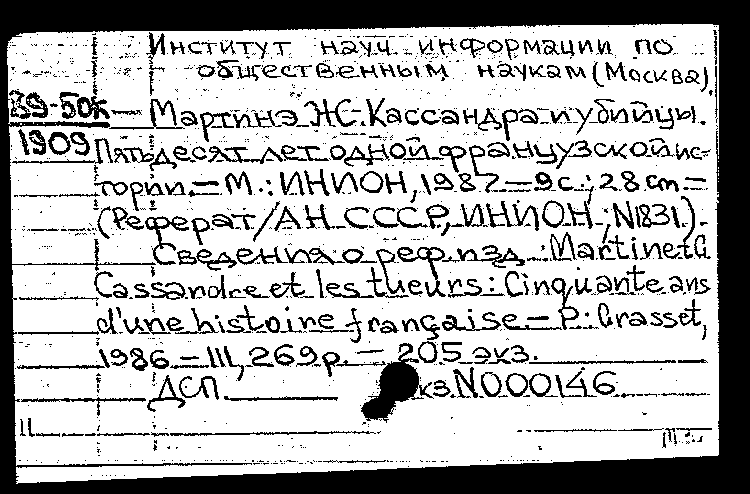 Институт науч. информации по
общественным наукам (Москва).
89-50к — Мартинэ Ж.С. Кассандра и убийцы.
1909 Пятьдесят лет одной французской ис-
тории. — М.: ИНИОН, 1987 — 9 с.; 28 cm. —
(Реферат/АН СССР, ИНИОН; N1831).
Сведения о реф. изд.: Martinet G
Cassandre et les tueurs: Cinquante ans
d'une histoire française. — P.: Grasset,
1986 — III, 269 p. — 205 экз.
ДСП. кз. N000146.